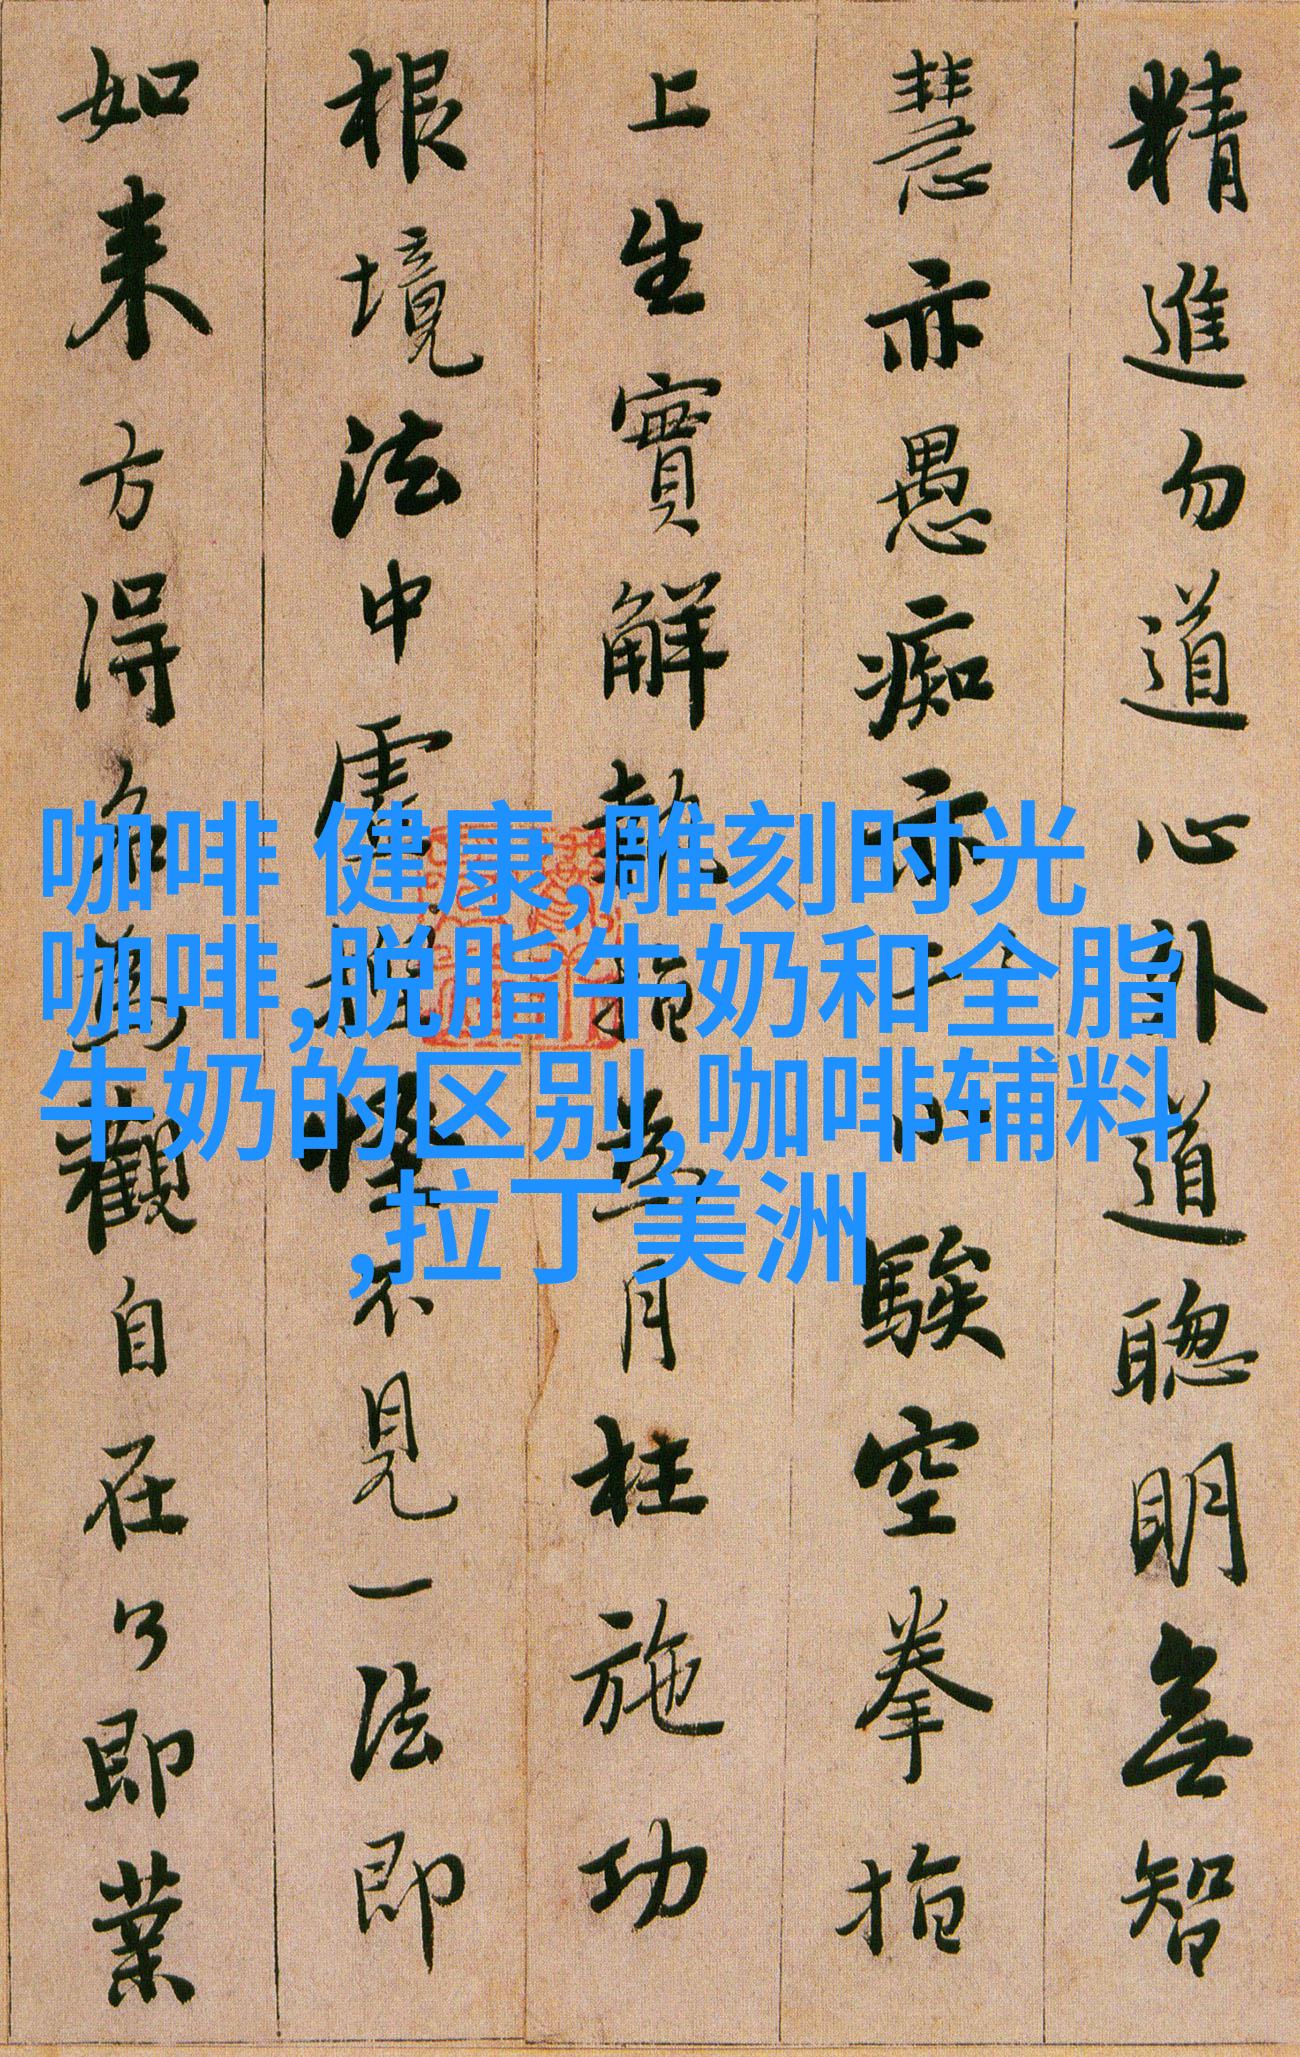 精進勿道心外道聰明無智
慧亦愚痴亦小騃空拳指
上生實解執指為月枉施功
根境法中虛捏怪不見一法即
如来方得名為觀自在了即業
咖啡 健康,雕刻时光
咖啡,脱脂牛奶和全脂
牛奶的区别,咖啡辅料
,拉丁美洲